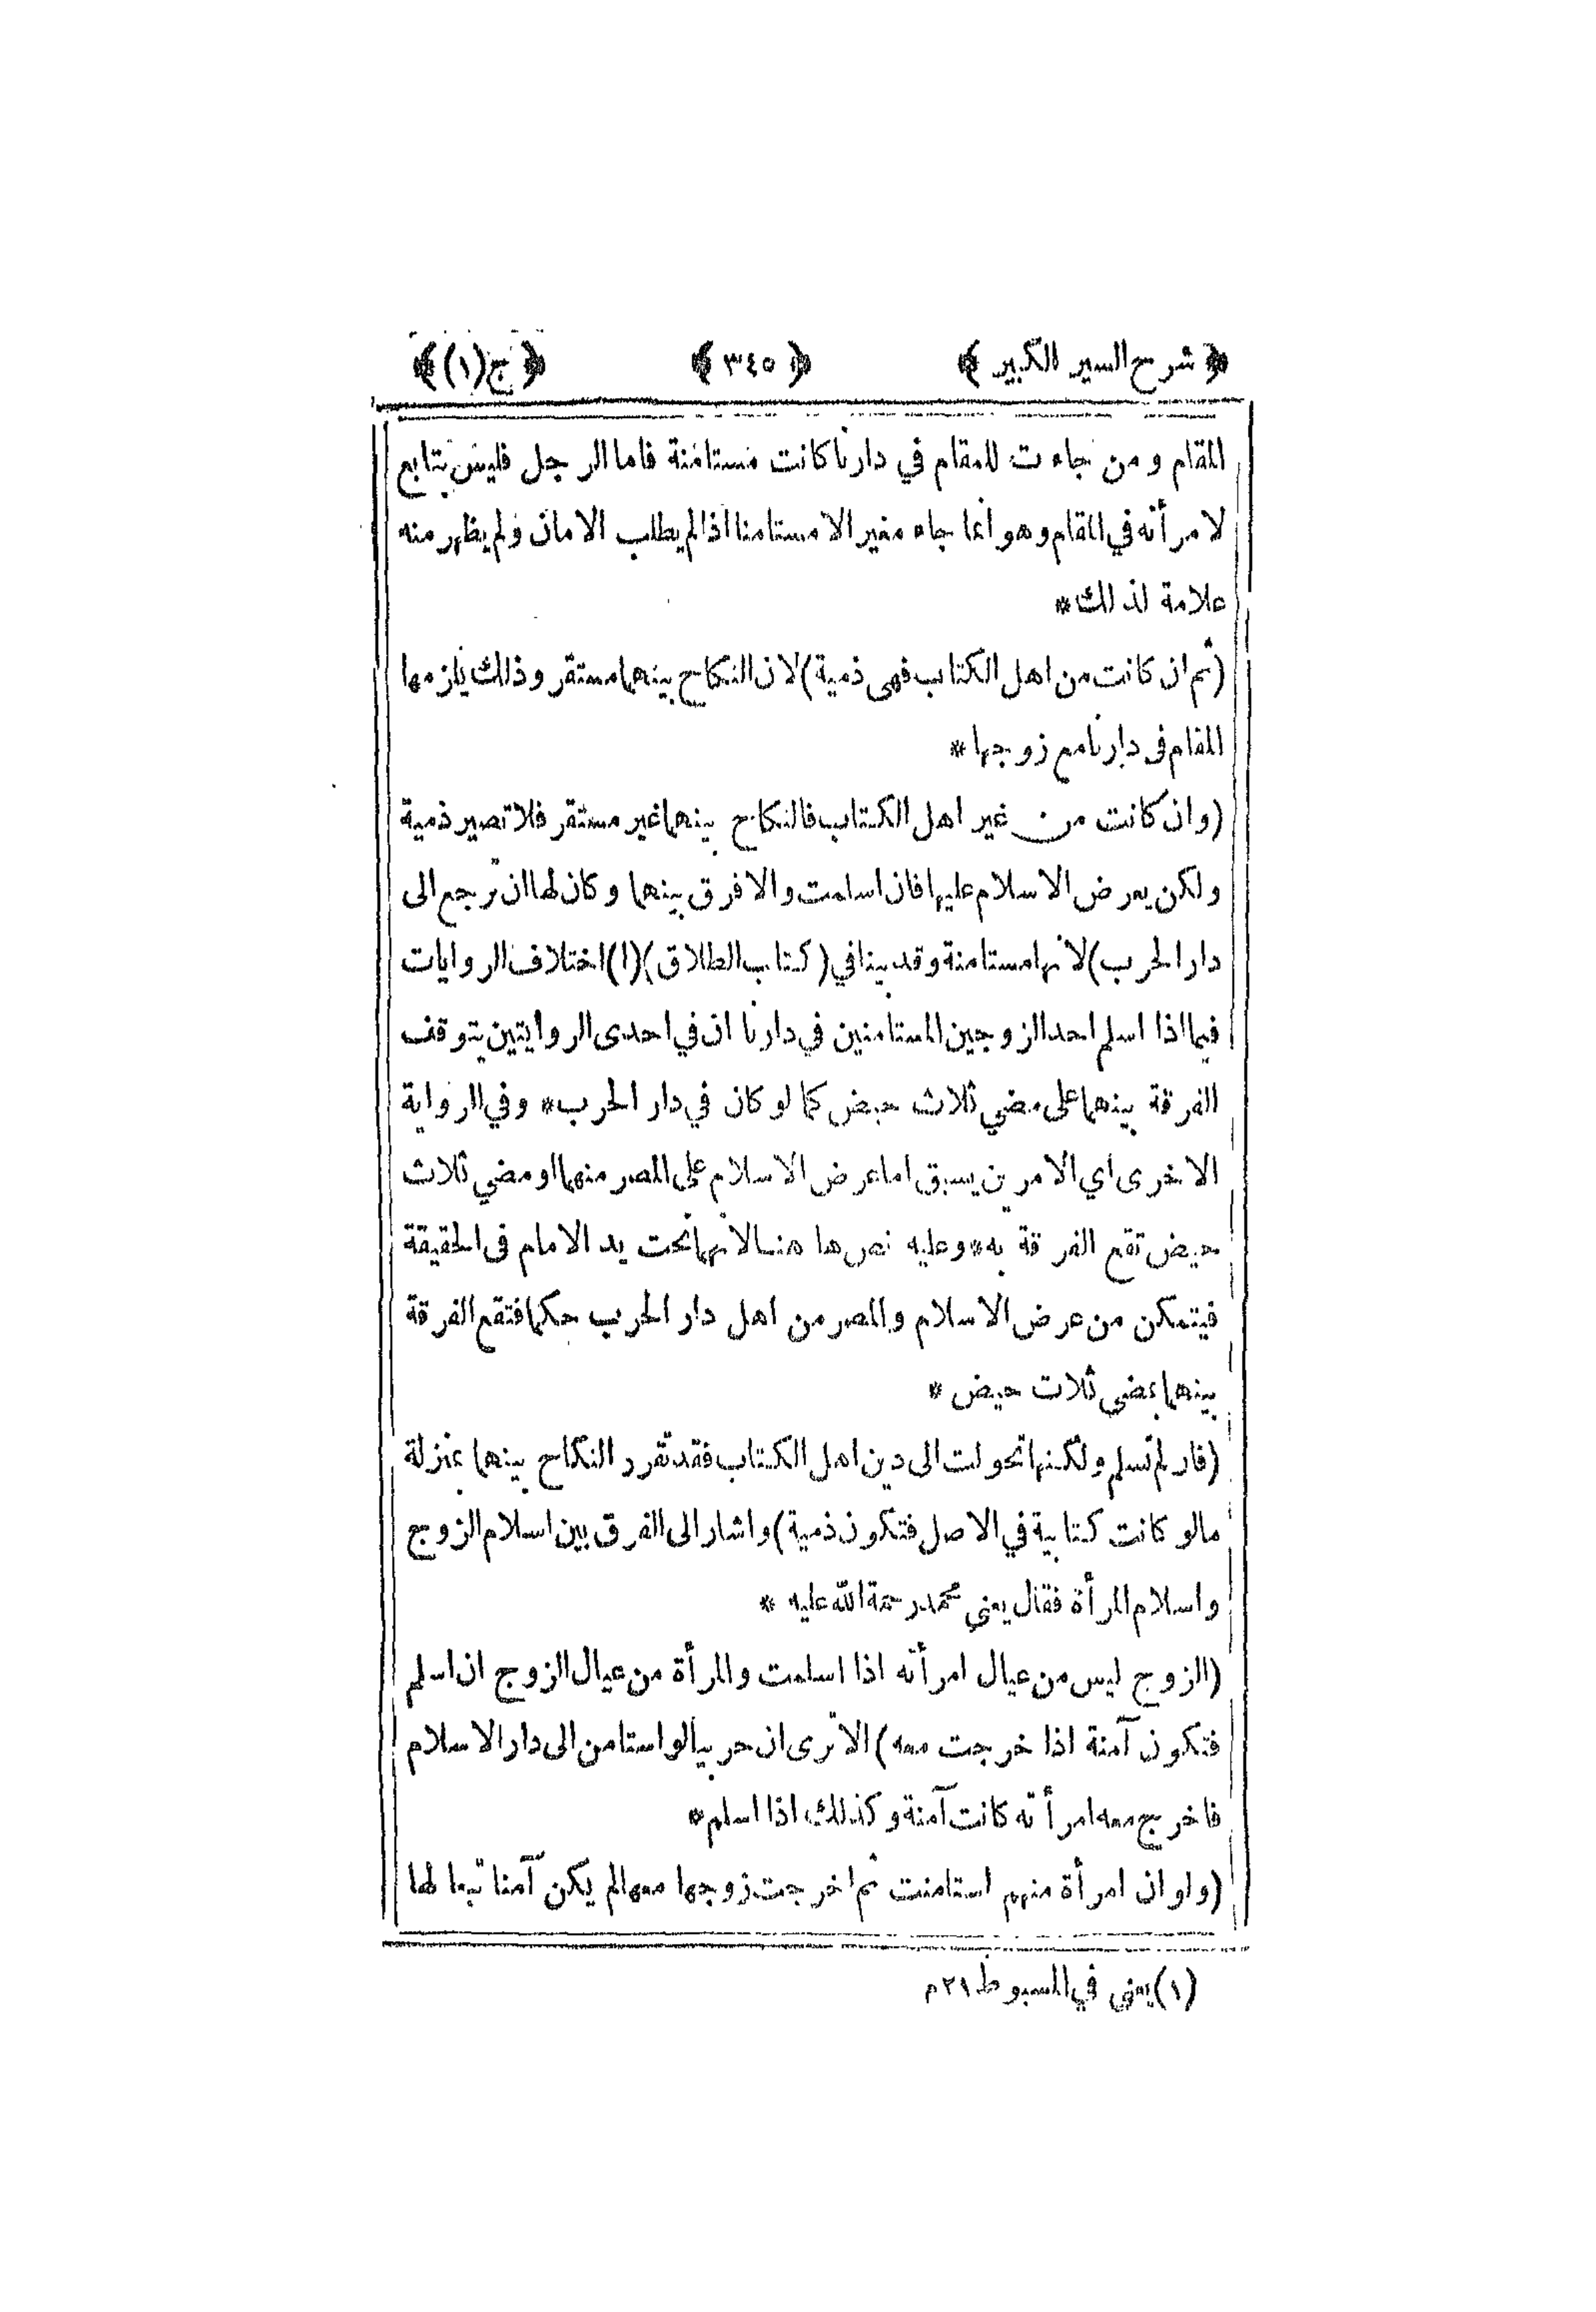 ﴿ شرح السير الكبير ﴾ ﴿ ٣٤٥ ﴾ ﴿ ج (١) ﴾
المقام ومن جاءت للمقام في دارنا كانت مستامنة فاما الرجل فليس بتابع
لامرأته في المقام وهو انما جاء مغيرا لا مستامنا اذا لم يطلب الامان ولم يظهر منه
علامة لذلك *
(ثم ان كانت من اهل الكتاب فهى ذمية) لان النكاح بينهما مستقر وذلك يلزمها
المقام فى دارنا مع زوجها *
(وان كانت من غير اهل الكتاب فالنكاح بينهما غير مستقر فلا تصير ذمية
ولكن يعرض الاسلام عليها فان اسلمت والا فرق بينهما وكان لها ان ترجع الى
دار الحرب) لانها مستامنة وقد بينا في (كتاب الطلاق) (١) اختلاف الروايات
فيما اذا اسلم احد الزوجين المستامنين في دارنا ان في احدى الروايتين يتوقف
الفرقة بينهما على مضي ثلاث حيض كما لو كان في دار الحرب * وفي الرواية
الاخرى اي الامرين يسبق اما عرض الاسلام على المصر منهما او مضي ثلاث
حيض تقع الفرقة به * وعليه نص ها هنا لانها تحت يد الامام فى الحقيقة
فيتمكن من عرض الاسلام والمصر من اهل دار الحرب حكما فتقع الفرقة
بينهما بمضي ثلاث حيض *
(فان لم تسلم ولكنها تحولت الى دين اهل الكتاب فقد تقرر النكاح بينهما بمنزلة
مالو كانت كتابية في الاصل فتكون ذمية) واشار الى الفرق بين اسلام الزوج
واسلام المرأة فقال يعني محمد رحمة الله عليه *
(الزوج ليس من عيال امرأته اذا اسلمت والمرأة من عيال الزوج ان اسلم
فتكون آمنة اذا خرجت معه) الا ترى ان حربيا لو استامن الى دار الاسلام
فاخرج معه امرأته كانت آمنة وكذلك اذا اسلم *
(ولو ان امرأة منهم استامنت ثم اخرجت زوجها معها لم يكن آمنا تبعا لها
(١) يعنى في المسبوط ١٢ م